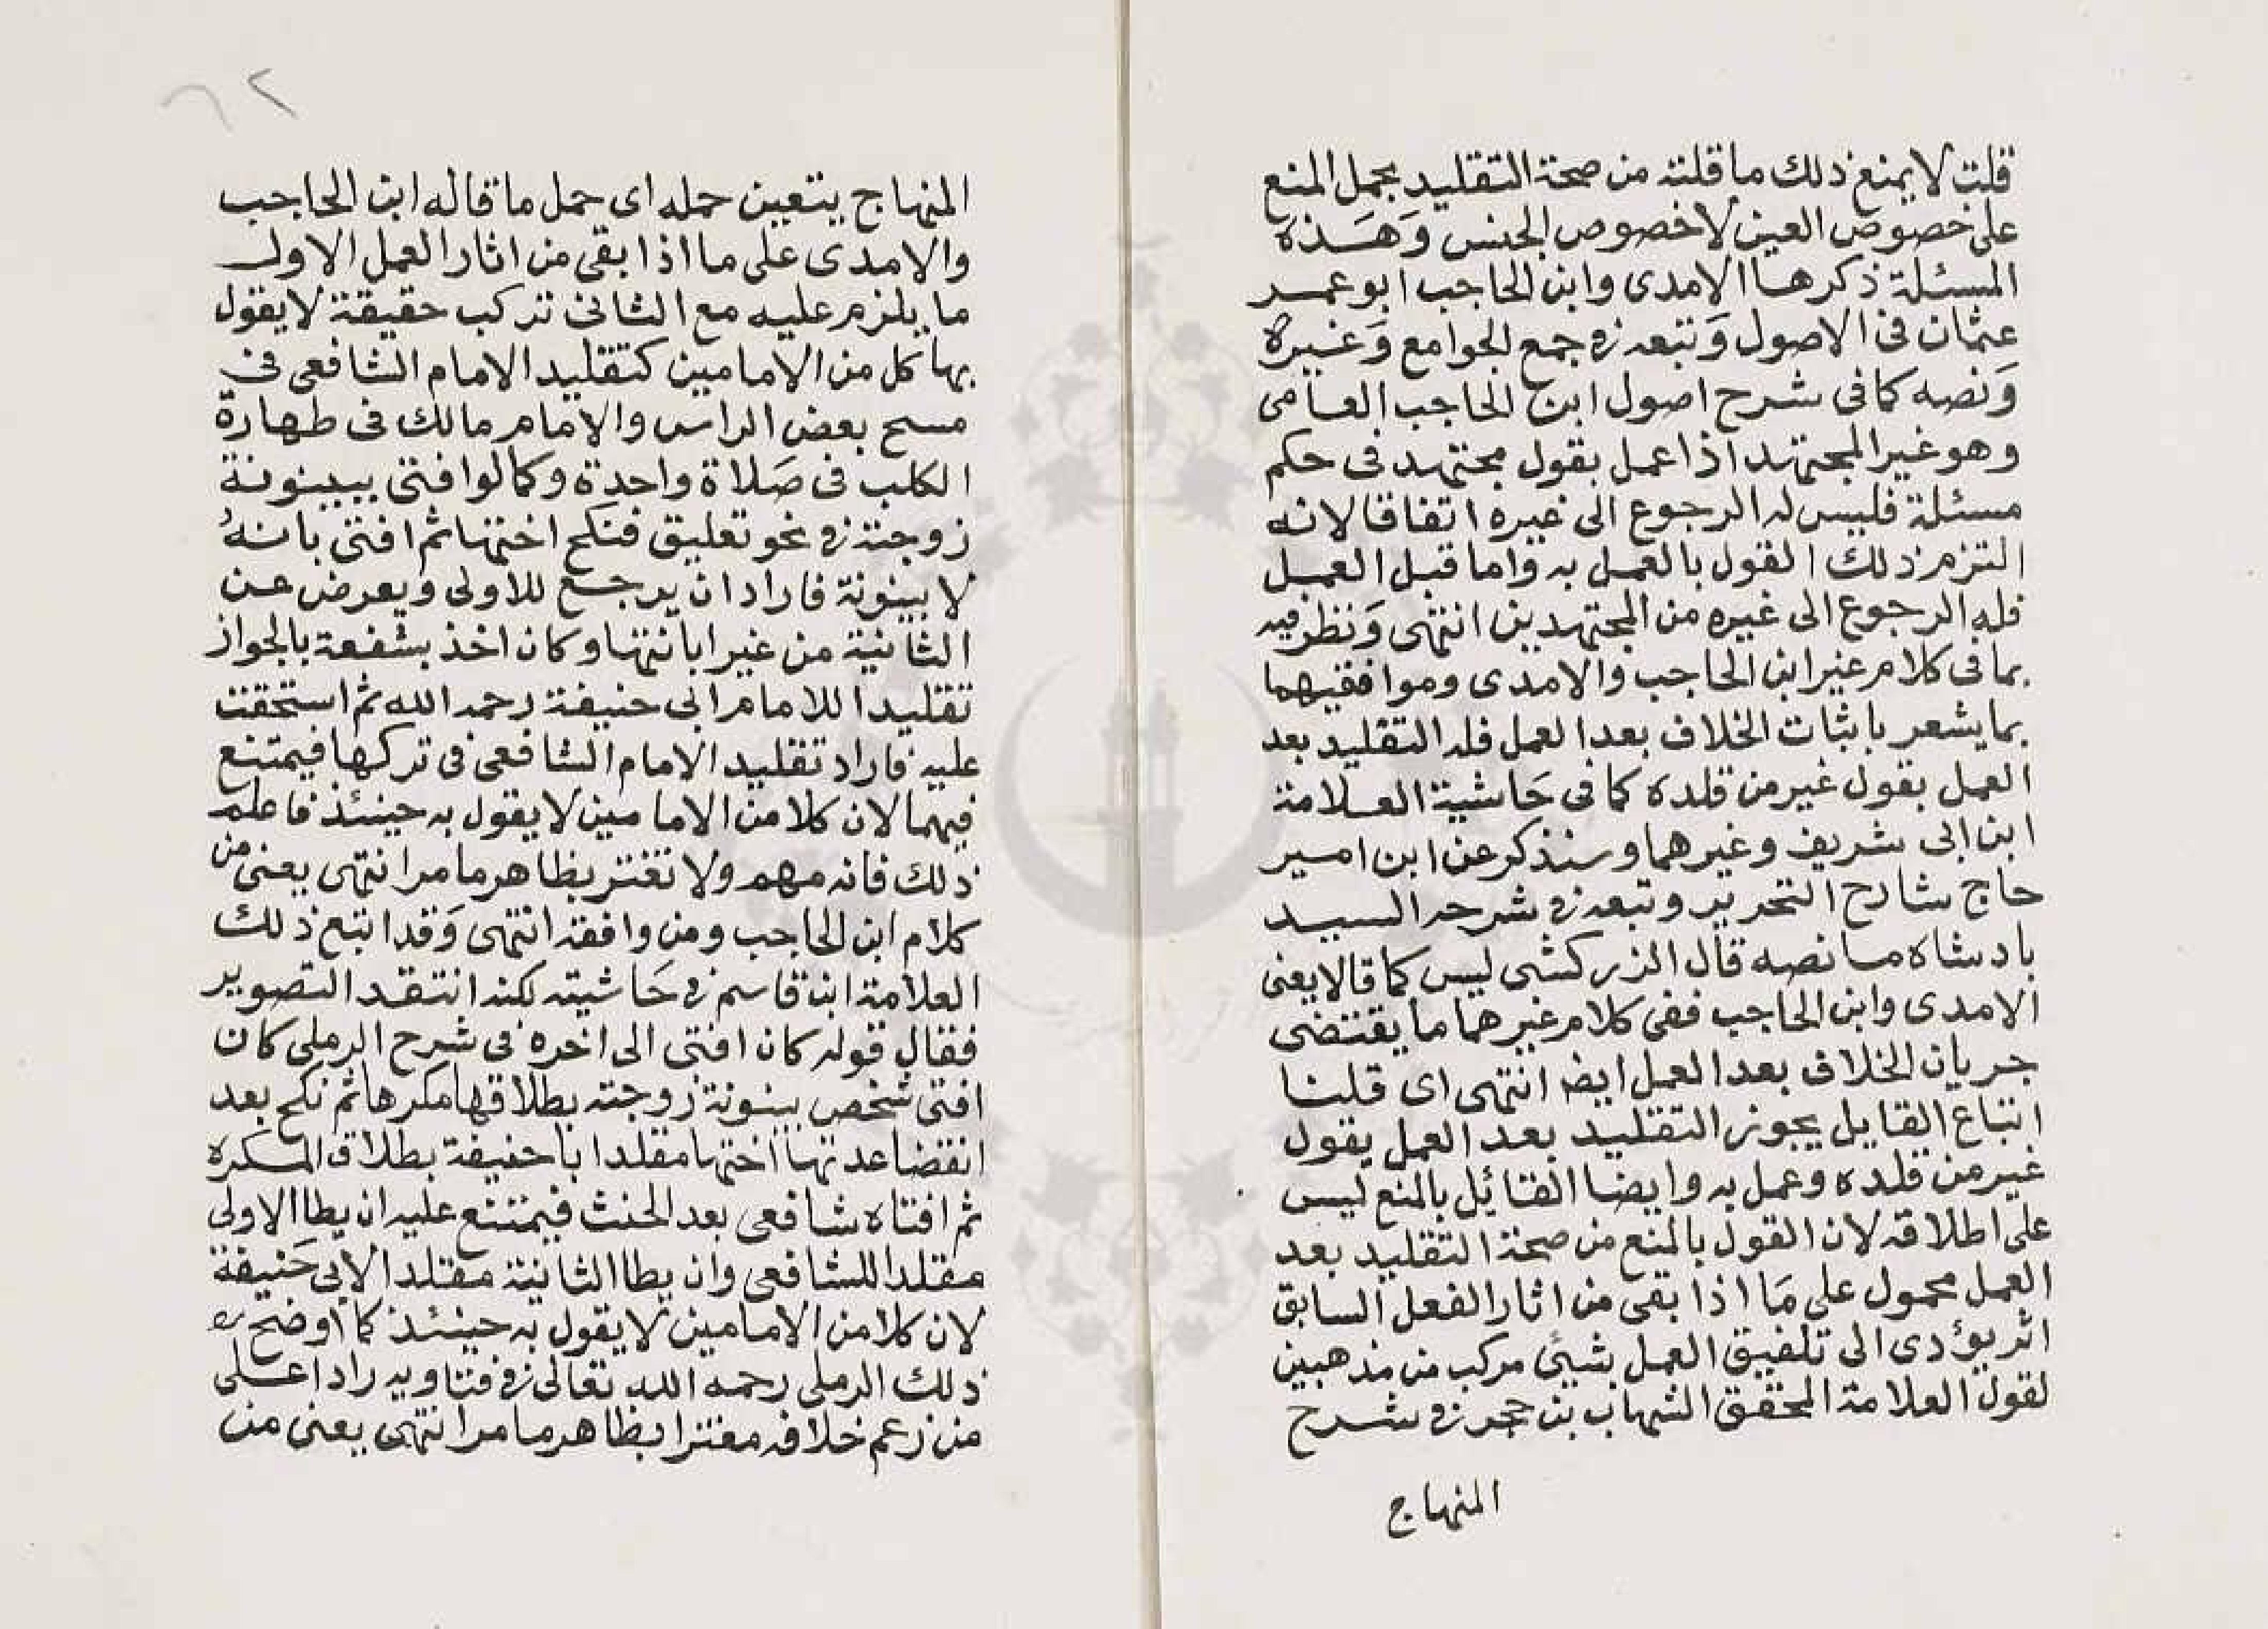 قلت لا يمنع ذلك ما قلته من صحة التقليد بحمل المنع
على خصوص العين لا خصوص الجنس وَهَذه
المسئلة ذكرها الامدى وابن الحاجب ابو عمر
عثمان فى الاصول وَتبعه فى جمع الجوامع وَغيره
وَنصه كما فى شرح اصول ابن الحاجب العامى
وهو غير المجتهد اذا عمل بقول مجتهد فى حكم
مسئلة فليس له الرجوع الى غيره اتفاقا لانه
التزم ذلك القول بالعمل به واما قبل العمل
فله الرجوع الى غيره من المجتهدين انتهى وَنظر فيه
بما فى كلام غير ابن الحاجب والامدى وموافقيهما
بما يشعر باثبات الخلاف بعد العمل فله التقليد بعد
العمل بقول غير من قلده كما فى حَاشية العلامة
ابن ابى شريف وغيرهما وسنذكر عن ابن امير
حاج شارح التحرير وتبعه فى شرحه السيد
بادشاه ما نصه قال الزركشى ليس كما قالا يعنى
الامدى وابن الحاجب ففى كلام غيرهما ما يقتضى
جريان الخلاف بعد العمل ايضا انتهى اى قلنا
اتباع القايل بجواز التقليد بعد العمل بقول
غير من قلده وعمل به وايضا القائل بالمنع ليس
على اطلاقه لان القول بالمنع من صحة التقليد بعد
العمل محمول على مَا اذا بقى من اثار الفعل السابق
اثر يؤدى الى تلفيق العمل بشئ مركب من مذهبين
لقول العلامة المحقق الشهاب بن حجر فى شرح
المنهاج
٦٢
المنهاج يتعين حمله اى حمل ما قاله ابن الحاجب
والامدى على ما اذا بقى من اثار العمل الاول
ما يلزم عليه مع الثانى تركب حقيقة لا يقول
بها كل من الامامين كتقليد الامام الشافعى فى
مسح بعض الراس والامام مالك فى طهارة
الكلب فى صَلاة واحدة وكما لو افتى ببينونة
زوجته فى نحو تعليق فنكح اختها ثم افتى بانهُ
لا بينونة فاراد ان يرجع للاولى ويعرض عن
الثانية من غير ابانتها وكان اخذ بشفعة بالجوار
تقليدا للامام ابى حنيفة رحمه الله ثم استحقت
عليه فاراد تقليد الامام الشافعى فى تركها فيمتنع
فيهما لان كلا من الامامين لا يقول به حينئذ فاعلم
ذلك فانه مهم ولا تغتر بظاهر ما مر انتهى يعنى من
كلام ابن الحاجب ومن وافقه انتهى وَقد اتبع ذلك
العلامة ابن قاسم فى حَاشيته لكنه انتقد التصوير
فقال قوله كان افتى الى اخره فى شرح الرملى كان
افتى شخص ببينونة زوجته بطلاقها مكرها ثم نكح بعد
انقضا عدتها اختها مقلدا باحنيفة بطلاق المكره
ثم افتاه شافعى بعد الحنث فيمتنع عليه ان يطا الاولى
مقلدا للشافعى وان يطا الثانية مقلدا لابى حَنيفة
لان كلا من الامامين لا يقول به حينئذ كما اوضح
ذلك الرملى رحمه الله تعالى فى فتاويه رادا على
من زعم خلافه مغترا بظاهر ما مر انتهى يعنى من